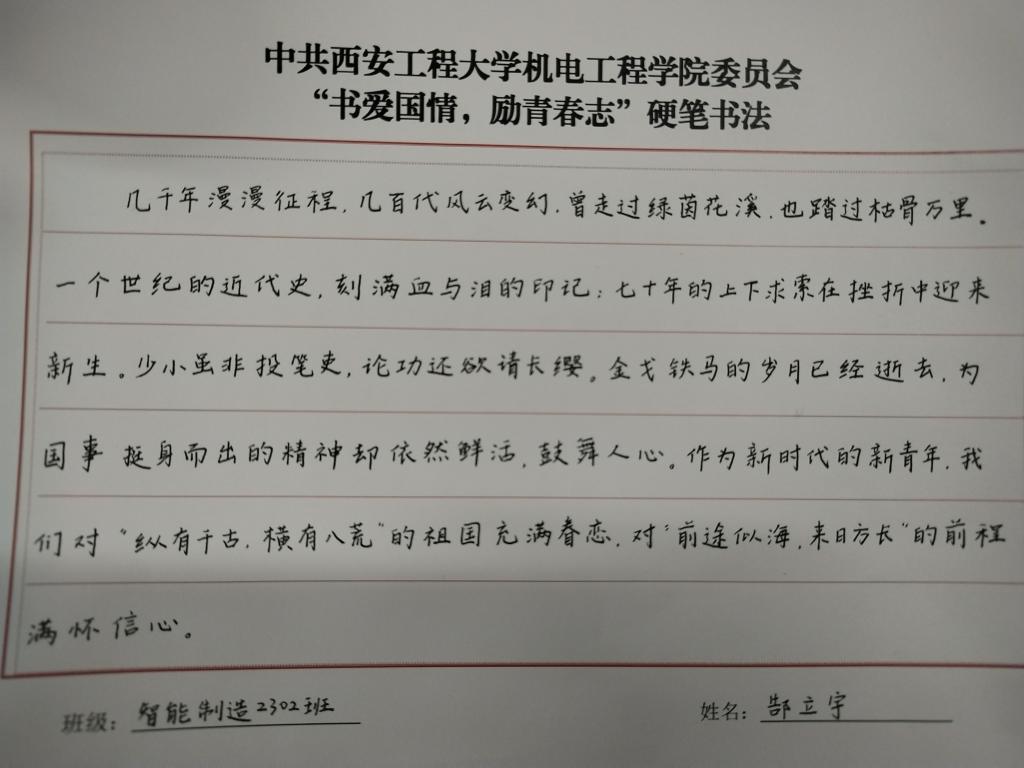 中共西安工程大学机电工程学院委员会
“书爱国情，励青春志”硬笔书法
几千年漫漫征程，几百代风云变幻，曾走过绿茵花溪，也踏过枯骨万里。
一个世纪的近代史，刻满血与泪的印记；七十年的上下求索在挫折中迎来
新生。少小虽非投笔吏，论功还欲请长缨。金戈铁马的岁月已经逝去，为
国事挺身而出的精神却依然鲜活，鼓舞人心。作为新时代的新青年，我
们对“纵有千古，横有八荒”的祖国充满眷恋，对“前途似海，来日方长”的前程
满怀信心。
班级：智能制造2302班
姓名：郜立宇